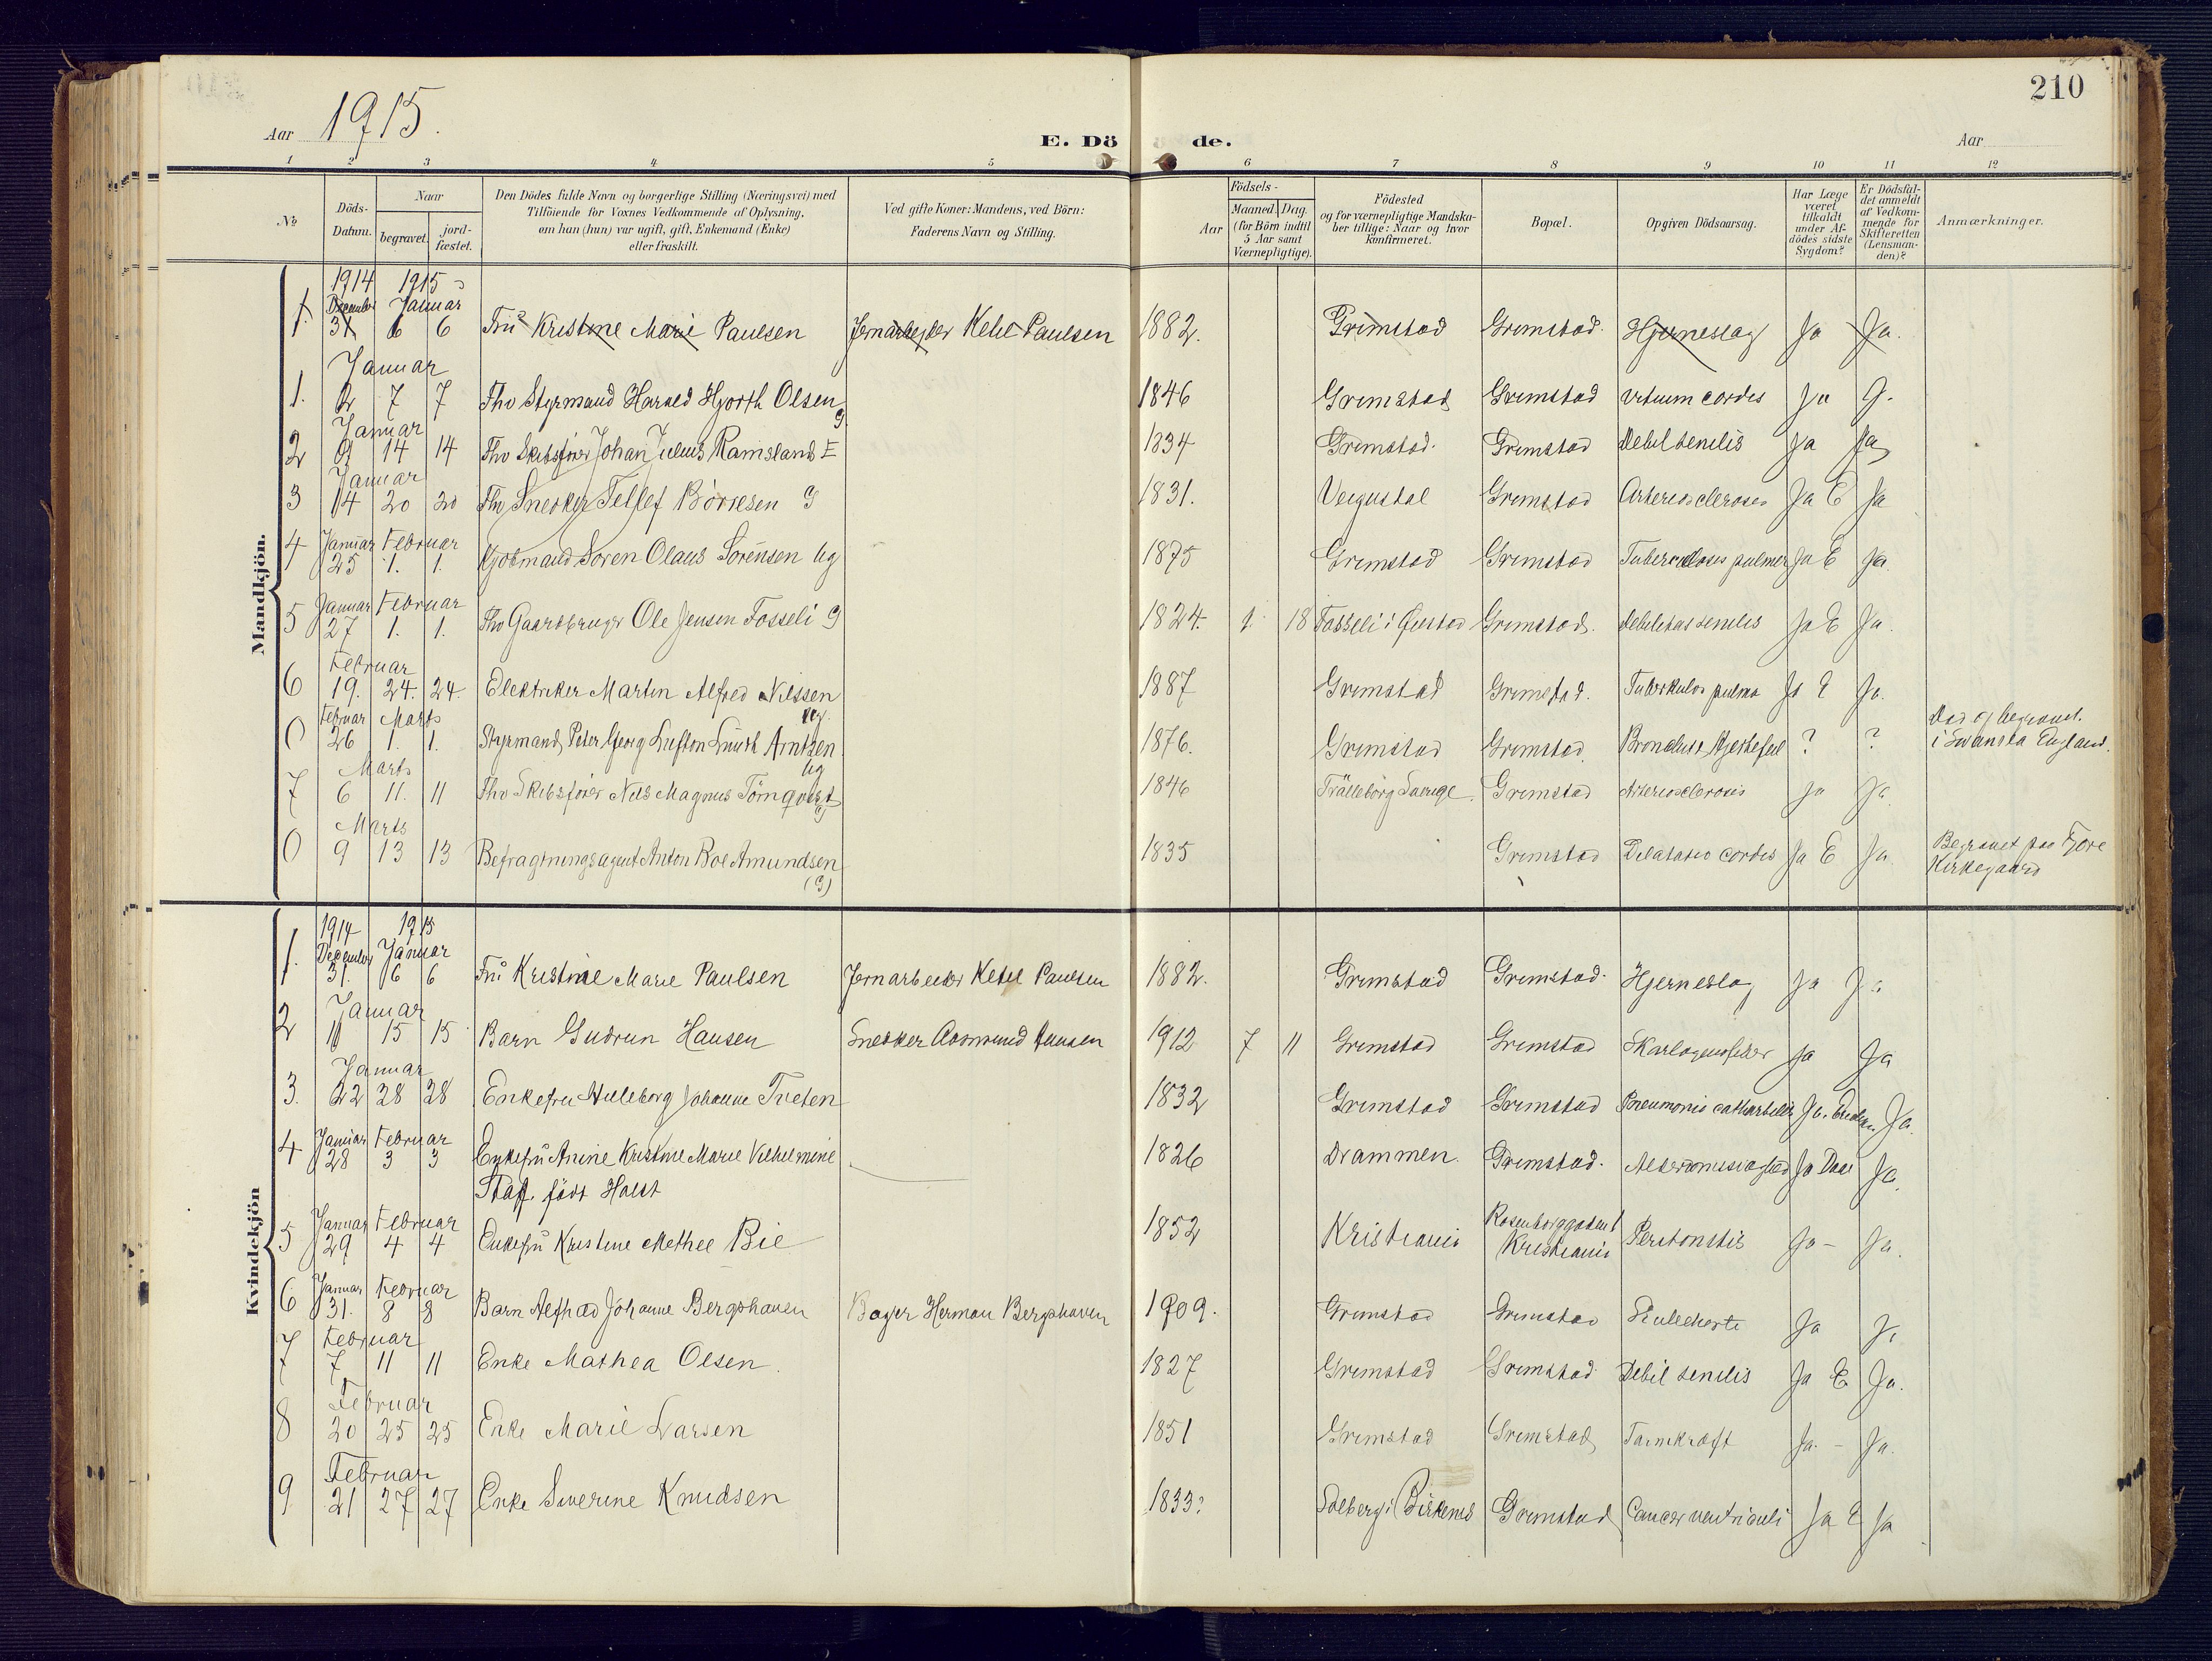 210
Aar 1915.
E. Döde.
Aar
1 2 3 4 5 6 7 8 9 10 11 12
No
Döds-Datum.
Naar
begravet.
jordfæstet.
Den Dödes fulde Navn og borgerlige Stilling (Næringsvei) med
Tilföiende for Voxnes Vedkommende af Oplysning,
om han (hun) var ugift, gift, Enkemand (Enke)
eller fraskilt.
Ved gifte Koner: Mandens, ved Börn:
Faderens Navn og Stilling.
Aar
Födsels-
Maaned. Dag.
(for Börn indtil
5 Aar samt
Værnepligtige).
Födested
og for værnepligtige Mandska-
ber tillige: Naar og hvor
konfirmeret.
Bopæl.
Opgiven Dödsaarsag.
Har Læge
været
tilkaldt
under Af-
dödes sidste
Sygdom?
Er Dödsfal-
det anmeldt
af Vedkom-
mende for
Skifteretten
(Lensman-
den)?
Anmærkninger.
Mandkjön.
1914 1915
December Januar
1. 31 6 6 Fru Kristine Marie Paulsen Jernarbejder Ketil Paulsen 1882. Grimstad Grimstad. Hjerneslag Ja Ja.
Januar
1. 2 7 7 Fhv Styrmand Harald Hjorth Olsen G 1846 Grimstad Grimstad Vitium cordis Ja J.
Januar
2 9 14 14 Fhv Skibsfører Johan Julius Ramsland E 1834 Grimstad. Grimstad Debil senilis Ja Ja
Januar
3 14 20 20 Fhv Snedker Tellef Börresen G 1831. Grimstad Arteriosclerosis Ja E Ja
Januar Februar
4 25 1. 1. Kjøbmand Soren Olaus Sorensen Ug 1875 Grimstad Grimstad Tuberculosis pulmer Ja E Ja
Januar Februar
5 27 1. 1. Fhv Gaardbruger Ole Jensen Fosseli G 1824. 1. 18 Fosseli i Grimstad. debilitas senilis Ja E Ja.
Februar
6 19. 24. 24. Elektriker Martin Alfred Nilssen Ug. 1887 Grimstad Grimstad. Tuberkulos pulmo Ja E Ja.
Februar Marts
0 26 1. 1. Styrmand Peter Georg Arntzen Ug 1876. Grimstad Grimstad. Hjertefeil ? ? Død og begravet. i Swansea England.
Marts
7 6 11. 11 Fhv Skibsfører Nils Magnus Törnqvist G 1846 Trälleborg Sverige. Grimstad Arteriosclerosis Ja Ja.
Marts
0 9 13 13 Befragtningsagent Anton Boe Amundsen (G) 1835 Grimstad Dilatatio cordis Ja E Ja Begravet paa Fjære Kirkegaard
Kvindekjön
1914 1915
December Januar
1. 31. 6 6 Fru Kristine Marie Paulsen Jernarbeider Ketil Paulsen 1882. Grimstad Grimstad. Hjerneslag Ja Ja
Januar
2 11 15 15 Barn Gudrun Hansen Snedker Aasmund Hansen 1912 7 11 Grimstad Grimstad Skarlagensfeber Ja Ja
Januar
3. 22 28 28 Enkefru Johanne Tveten 1832 Grimstad Grimstad Ja. Ja.
Januar Februar
4 28 3 3 Enkefru Anine Kristine Marie Vilhelmine
født Holst 1826 Drammen. Grimstad. Ja Ja.
Januar Februar
5 29 4 4 Enkefru Kristine Methee Bie 1852 Kristiania Rosenborggaden 1 Kristiania Peritonitis Ja – Ja.
Januar Februar
6 31. 8 8 Barn Johanne Bergshaven Bager Herman Bergshaven 1909. Grimstad Grimstad Ja Ja
Februar
7 7 11 11 Enke Mathea Olsen. 1827 Grimstad Grimstad Debil senilis Ja E Ja.
Februar
8 20 25 25 Enke Marie Larsen 1851 Grimstad Grimstad Tarmkræft Ja. – Ja.
Februar
9 21 27 27 Enke Severine Knudsen 1833? Solberg i Birkenes Grimstad Cancer ventriculi Ja E Ja